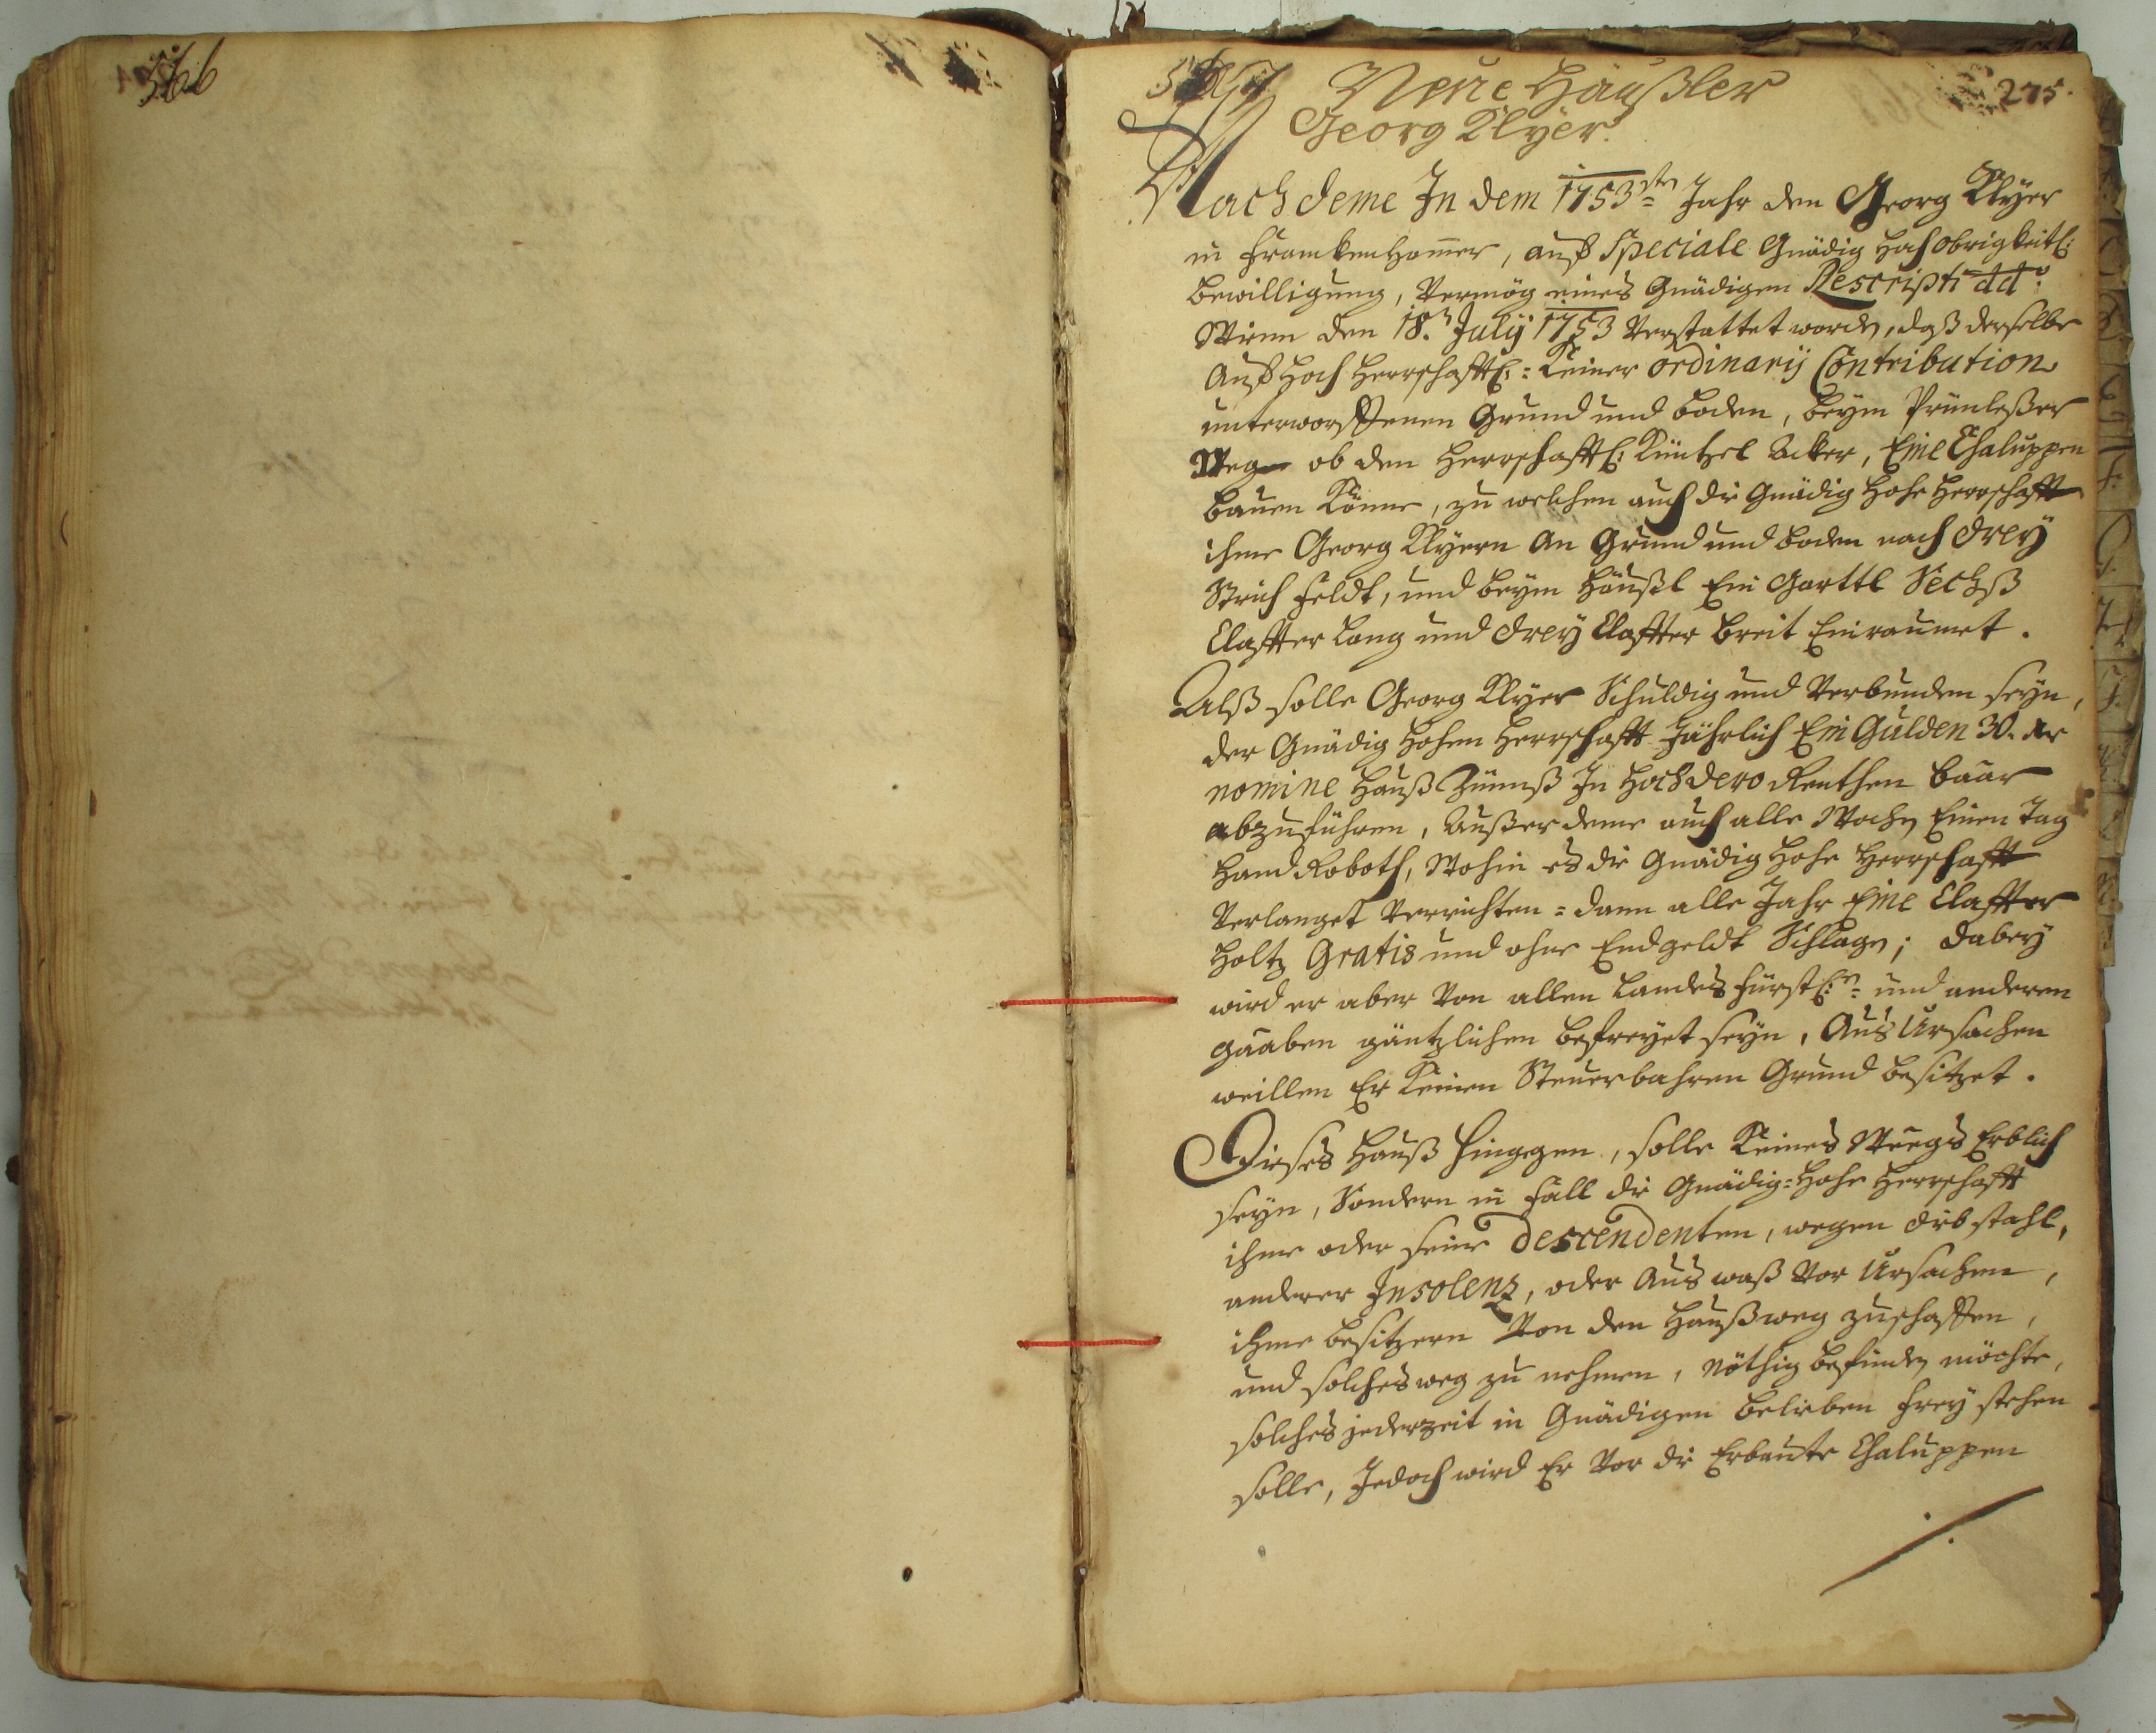 566
567 Neüe Häußler 275.
Georg Klÿer.
Nach deme In dem 1753sten Jahr den Georg Klÿer
in Frankenhamer, auß Speciale Gnädig Hoch obrigkeitl:
bewilligung, Vermög eines Gnädigen Rescripti dd:o
Wienn den 18.n Julÿ 1753 Verstattet worden, daß derselbe
Auß Hoch Herrschafftl:= Keiner ordinarÿ Contribution
unterworffenen Grund und boden, beÿm Prünleßer
Weg ob den Herrschafftl: Küntzel Acker, Eine Chaluppen
bauen Könne, zu welchen auch die Gnädig Hohe Herrschafft
ihme Georg Klÿern An Grund und boden noch dreÿ
Strich Feldt, und beÿm Häußl Ein Garttl Sechß
Claffter Lang und dreÿ Claffter breit Einraumet.
Alß solle Georg Klÿer Schuldig und Verbunden seÿn,
der Gnädig Hohen Herrschafft Jährlich Ein Gulden 30. kr
nomine Hauß Zünnß In Hochdero Renthen baar
abzuführen, Außer deme auch alle Wochen Einen Tag
Hand Roboth, Wohin es die Gnädig Hohe Herrschafft
Verlanget Verrichten = dann alle Jahr Eine Claffter
Holtz Gratis und ohne Endgeldt Schlagen; dabeÿ
wird er aber Von allen Landes Fürstl:n= und anderen
gaaben gäntzlichen befreÿet seÿn, Aus Ursachen
weillen Er Keinen Steuerbahren Grund besitzet.
Dieses Hauß hingegen, solle Keines Weegs Erblich
seÿn, Sondern in Fall die Gnädig=Hohe Herrschafft
ihme oder seine Descendenten, wegen diebstahl,
anderer Insolenz, oder Aus waß Vor Ursachen,
ihme besitzern Von den Hauß weg zuschaffen,
und solches weg zu nehmen, nöthig befinden möchte,
solches jederzeit in Gnädigen belieben freÿ stehen
solle, Jedoch wird Er Vor die Erbaute Chaluppen